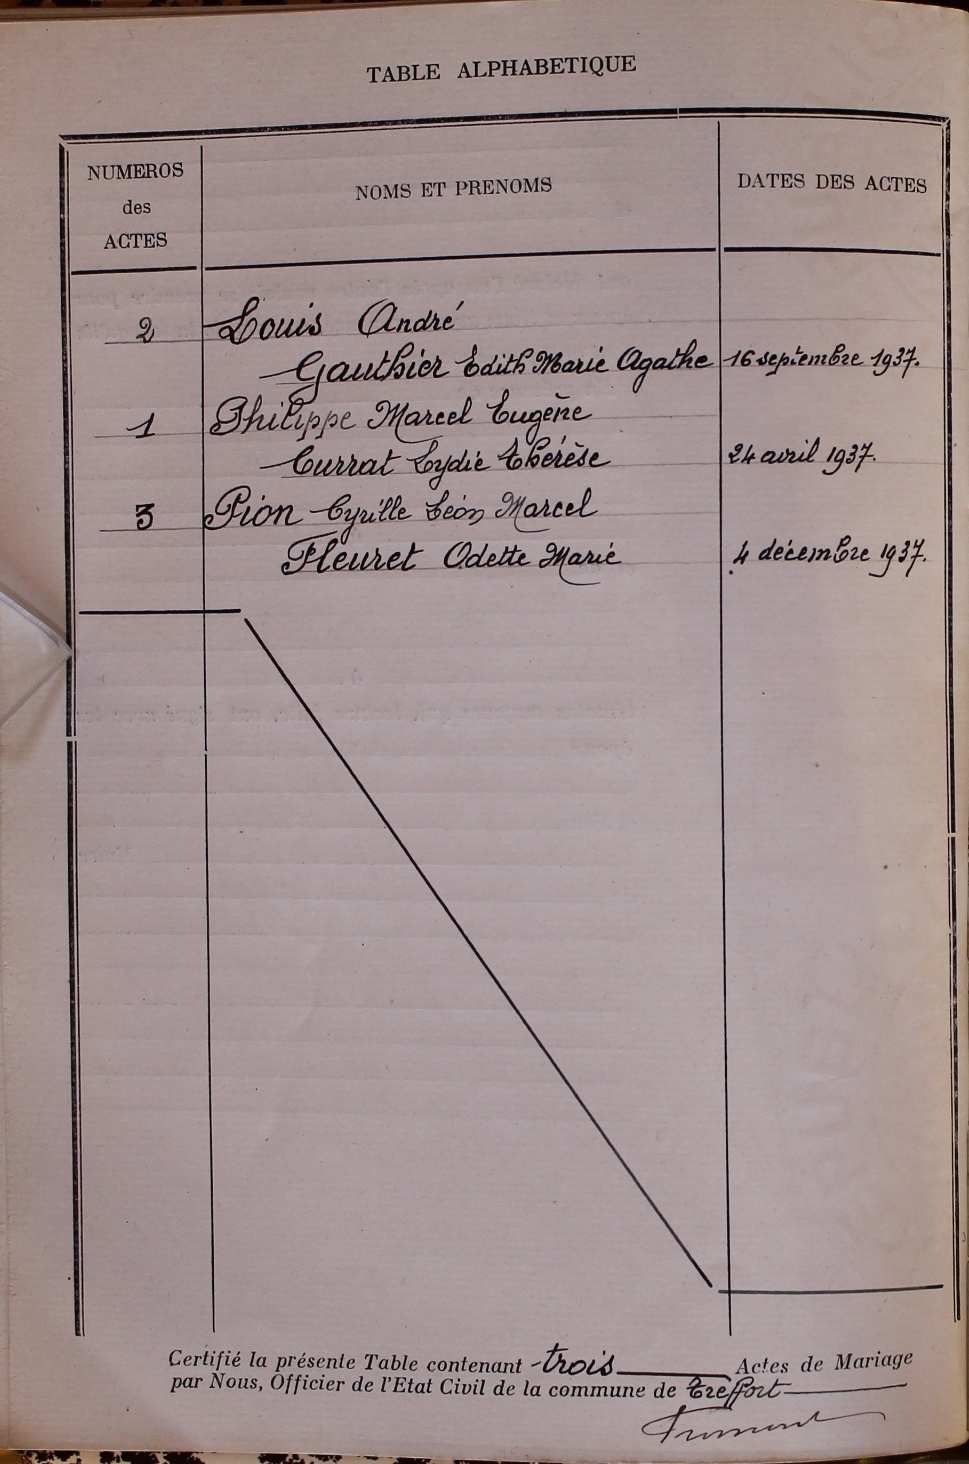 TABLE ALPHABETIQUE
NUMEROS
des
ACTES
NOMS ET PRENOMS
DATES DES ACTES
2 Louis André
Gauthier Edith Marie Agathe 16 septembre 1937.
1 Philippe Marcel Eugène
Currat Lydie Thérèse 24 avril 1937.
3 Pion Cyrille Léon Marcel
Fleuret Odette Marie 4 décembre 1937.
Certifié la présente Table contenant trois Actes de Mariage
par Nous, Officier de l'Etat Civil de la commune de Treffort